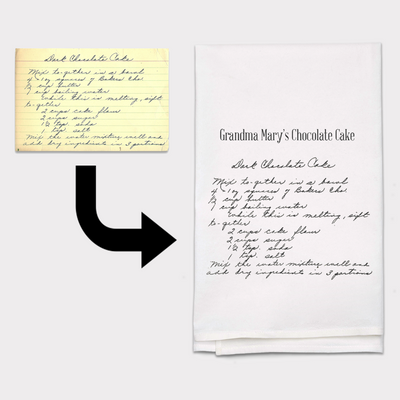 Dark Chocolate Cake
Mix to-gether in a bowl
of 1 oz squares of Bakers Cho.
½ cup butter
1 cup boiling water
While this is melting, sift
to-gether
2 cups cake flour
2 cups sugar
1½ tsp. soda
1 tsp. salt
Mix the water mixture well and
add dry ingredients in 3 portions
Grandma Mary's Chocolate Cake
Dark Chocolate Cake
Mix to-gether in a bowl
of 1 oz squares of Bakers Cho.
½ cup butter
1 cup boiling water
While this is melting, sift
to-gether
2 cups cake flour
2 cups sugar
1½ tsp. soda
1 tsp. salt
Mix the water mixture well and
add dry ingredients in 3 portions